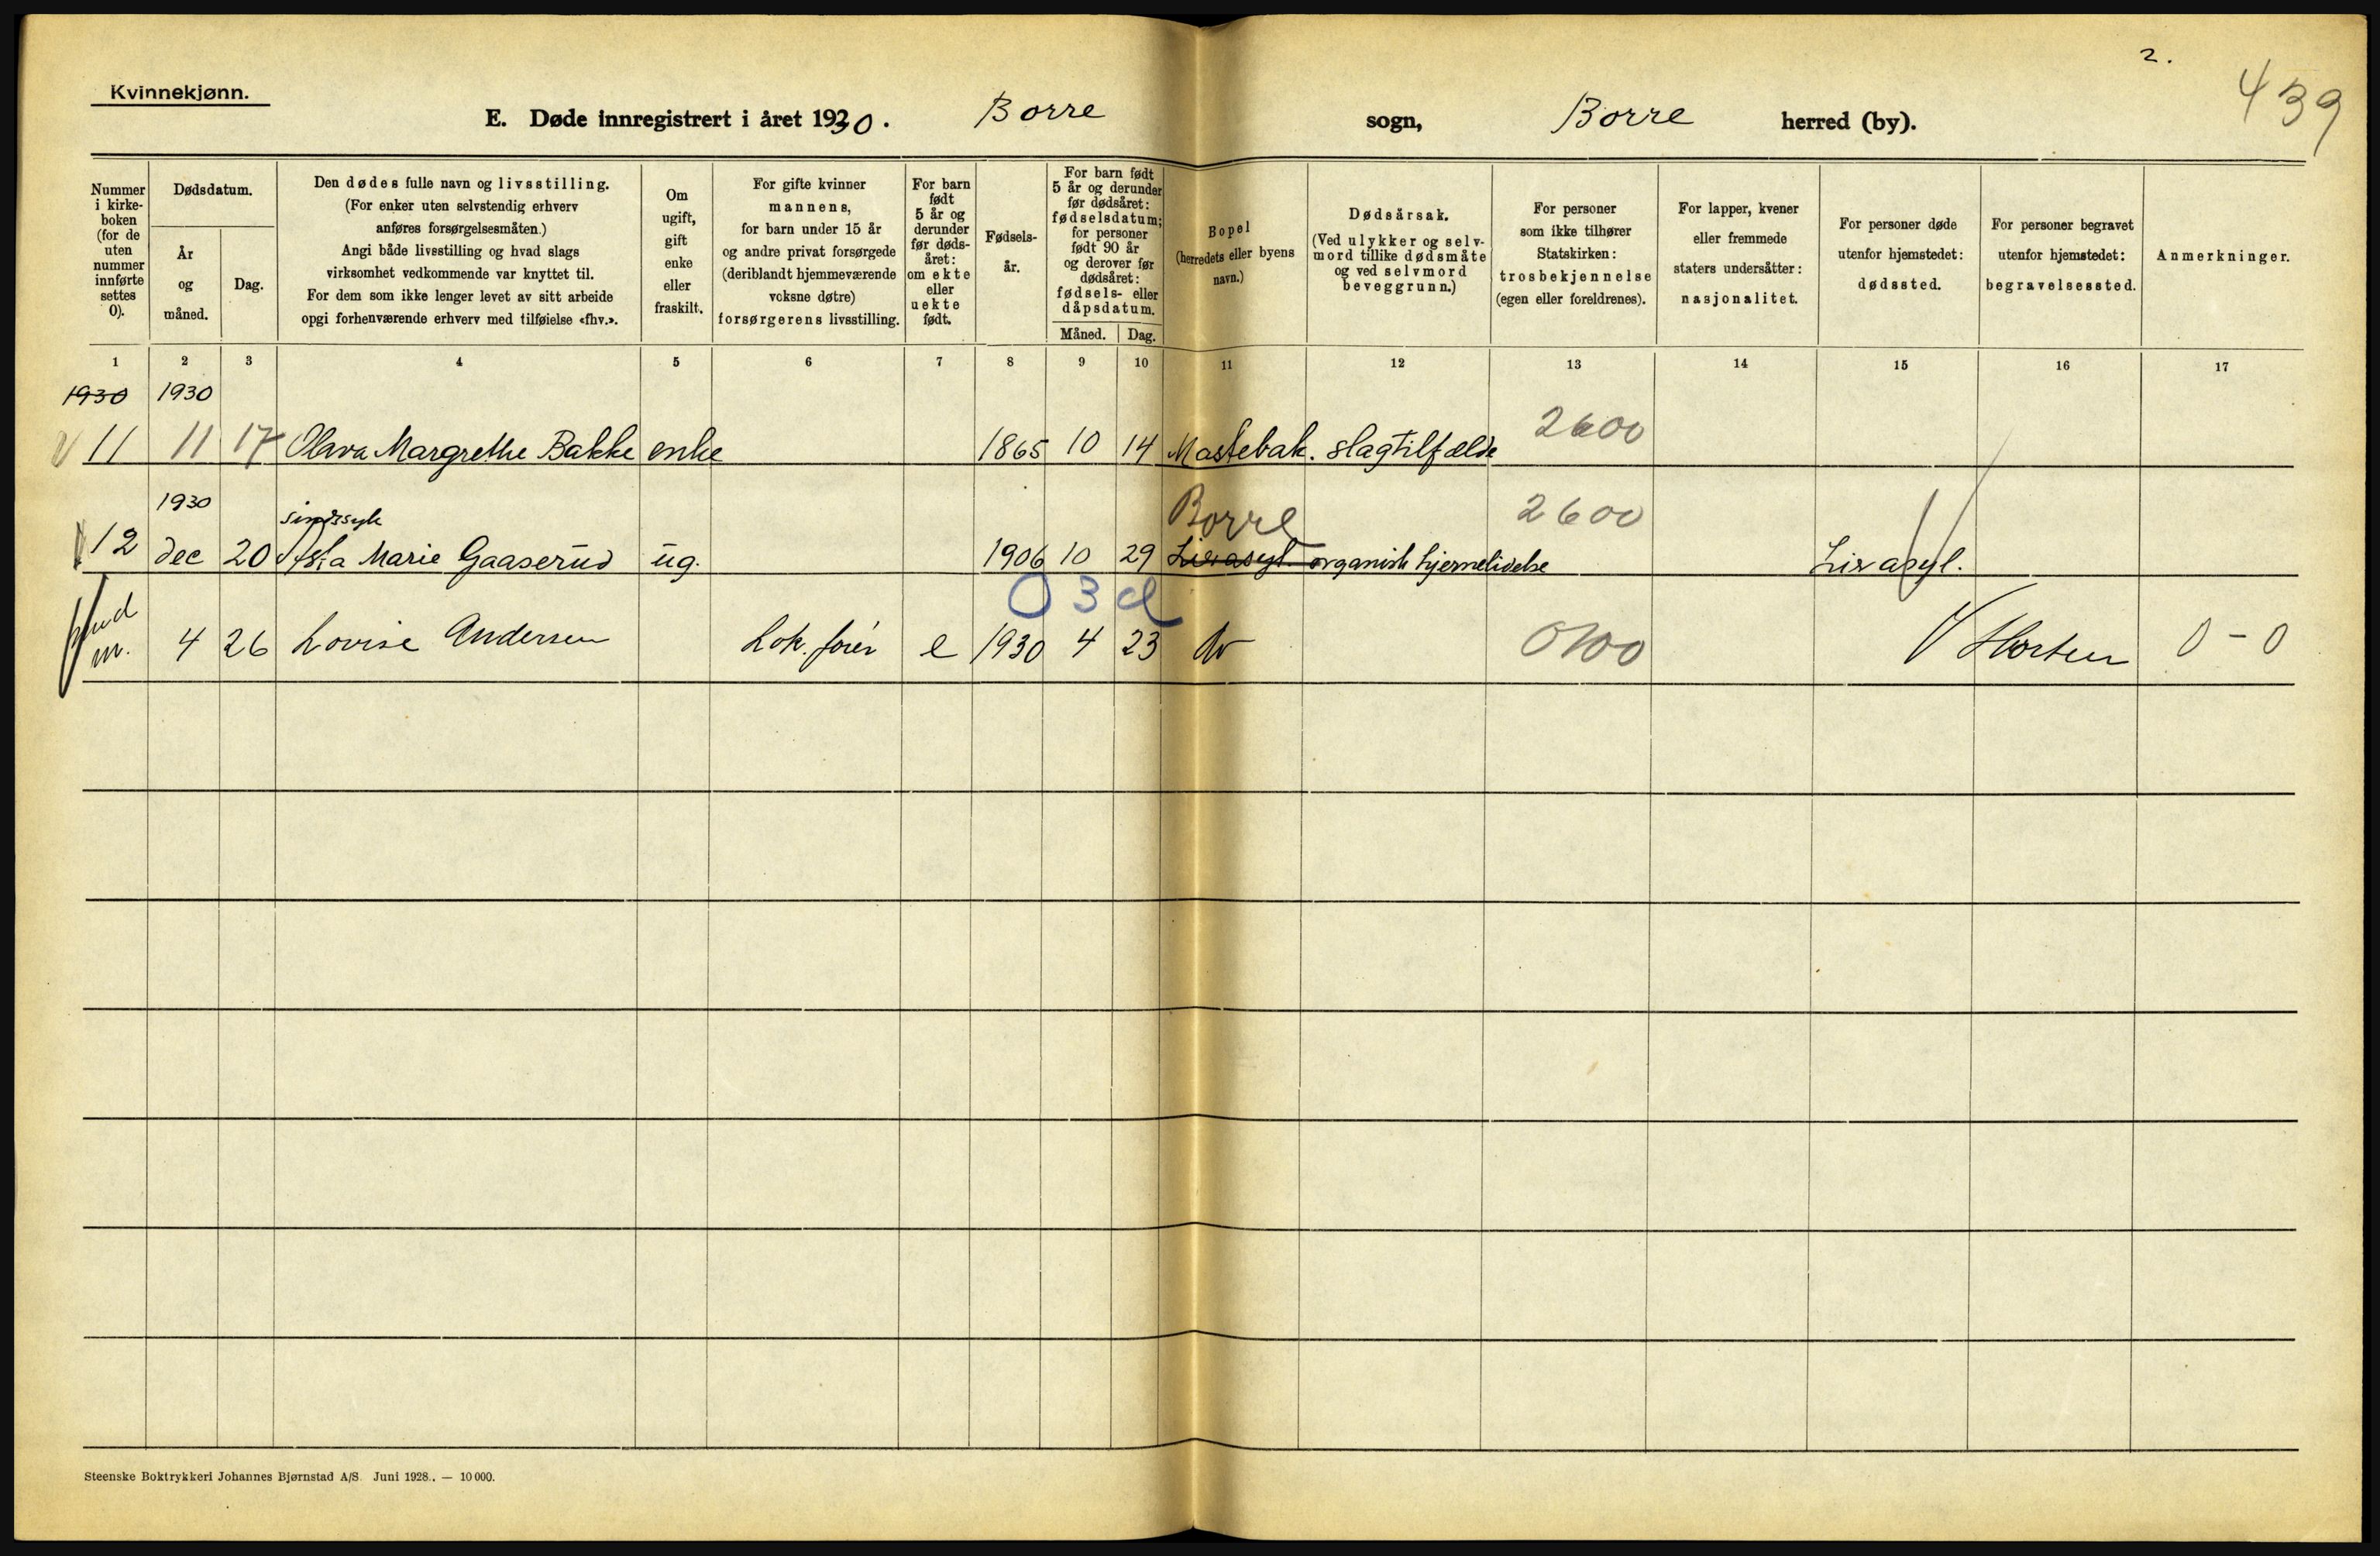 2.
439
Kvinnekjønn.
E. Døde innregistrert i året 1930. Borre sogn, Borre herred (by).
Nummer i kirke- boken (for de uten nummer innførte settes 0).
Dødsdatum.
År og måned.
Dag.
Den dødes fulle navn og livsstilling.
(For enker uten selvstendig erhverv
anføres forsørgelsesmåten.)
Angi både livsstilling og hvad slags
virksomhet vedkommende var knyttet til.
For dem som ikke lenger levet av sitt arbeide
opgi forhenværende erhverv med tilføielse «fhv.».
Om ugift, gift enke eller fraskilt.
For gifte kvinner
mannens,
for barn under 15 år
og andre privat forsørgede
(deriblandt hjemmeværende
voksne døtre)
forsørgerens livsstilling.
For barn født 5 år og derunder før døds- året: om ekte eller uekte født.
Fødsels- år.
For barn født
5 år og derunder
før dødsåret:
fødselsdatum;
for personer
født 90 år
og derover før
dødsåret:
fødsels- eller
dåpsdatum.
Måned. Dag.
Bopel
(herredets eller byens
navn.)
Dødsårsak.
(Ved ulykker og selv-
mord tillike dødsmåte
og ved selvmord
beveggrunn.)
For personer
som ikke tilhører
Statskirken:
trosbekjennelse
(egen eller foreldrenes).
For lapper, kvener
eller fremmede
staters undersåtter:
nasjonalitet.
For personer døde
utenfor hjemstedet:
dødssted.
For personer begravet
utenfor hjemstedet:
begravelsessted.
Anmerkninger.
1 2 3 4 5 6 7 8 9 10 11 12 13 14 15 16 17
1930 1930
11 11 17 Olava Margrethe Bakke enke 1865 10 14 Mastebak. slagtilfælde 2600
1930 sindssyk Borre 2600
12 dec 20 Asta Marie Gaaserud ug. 1906 10 29 Lier asyl. organisk hjernelidelse Lier asyl.
03d
4 26 Lovise Andersen Lok. fører e 1930 4 23 do 0100 Horten 0 - 0
Steenske Boktrykkeri Johannes Bjørnstad A/S. Juni 1928. — 10 000.